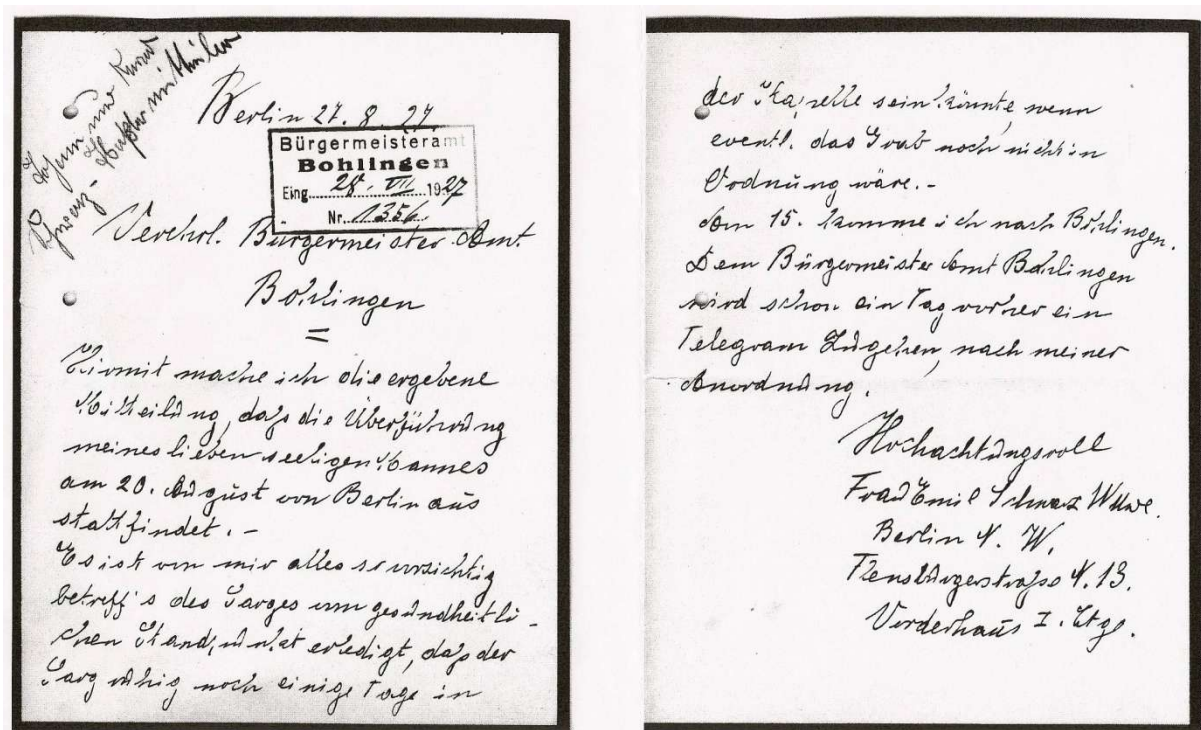 Berlin 27. 8. 27.
Bürgermeisteramt
Bohlingen
Eing. 28. VII 1927
Nr. 1356
Verehrl. Bürgermeister Amt.
Bohlingen
=
Hirmit mache ich die ergebene
Mitteilung, daß die Überführung
meines lieben seeligen Mannes
am 20. August von Berlin aus
stattfindet. -
Es ist von mir alles so vorsichtig
betreff's des Sarges vom gesundheitli-
chen Standpunkt erledigt, daß der
Sarg ruhig noch einige Tage in
der Kapelle sein könnte, wenn
eventl. das Grab noch nicht in
Ordnung wäre. -
Am 15. komme ich nach Bohlingen.
Dem Bürgermeister Amt Bohlingen
wird schon ein Tag vorher ein
Telegram Zugehen, nach meiner
Anordnung.
Hochachtungsvoll
Frau Emil Schwarz Wtwe.
Berlin N. W.
Flensburgerstraße N. 13.
Vorderhaus I. Etg.